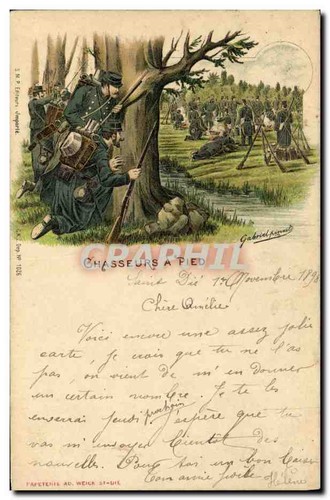 Gabriel
CARTE PHILA
CHASSEURS A PIED
Saint Dié 15 Novembre 1898
Chère Amélie
Voici encore une assez jolie
carte, je crois que tu ne l'as
pas, on vient de m'en donner
un certain nombre. Je te les
enverrai Jeudi prochain J'espère que tu
vas m'envoyer bientôt des
nouvelles. Pour toi un bon baiser
Ton amie Hélène
PAPETERIE AD. WEICK ST-DIÉ